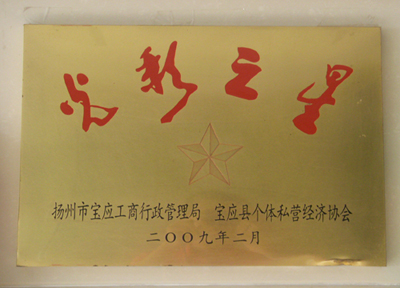 光彩之星
扬州市宝应工商行政管理局 宝应县个体私营经济协会
二〇〇九年二月